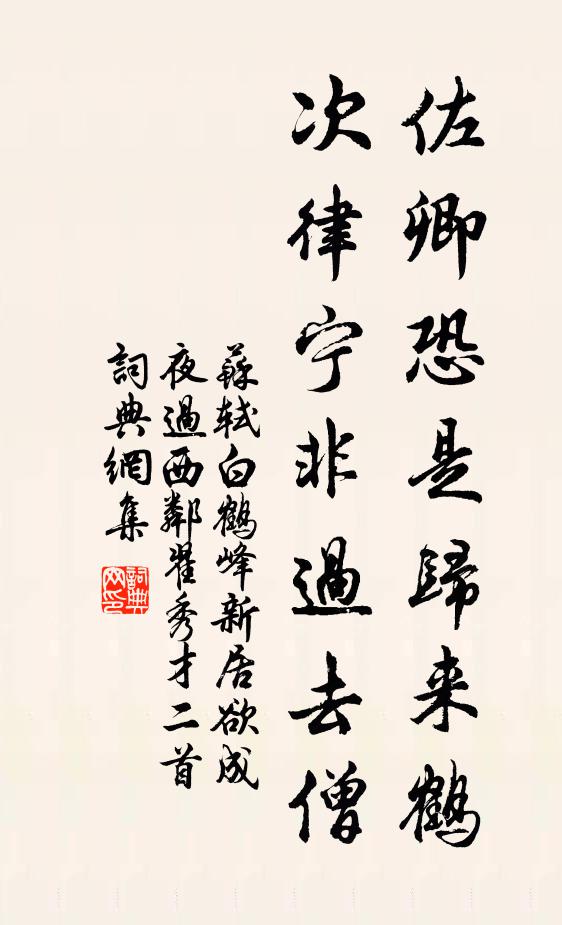 佐卿恐是歸来鶴
次律宁非過去僧
蘇軾白鶴峰新居欲成
夜過西鄰翟秀才二首
詞典網集
詞典网印